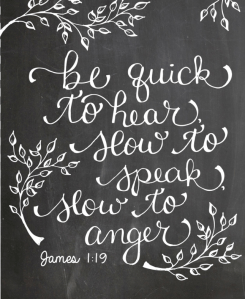 be quick
to hear,
slow to
speak,
slow to
anger
James 1:19